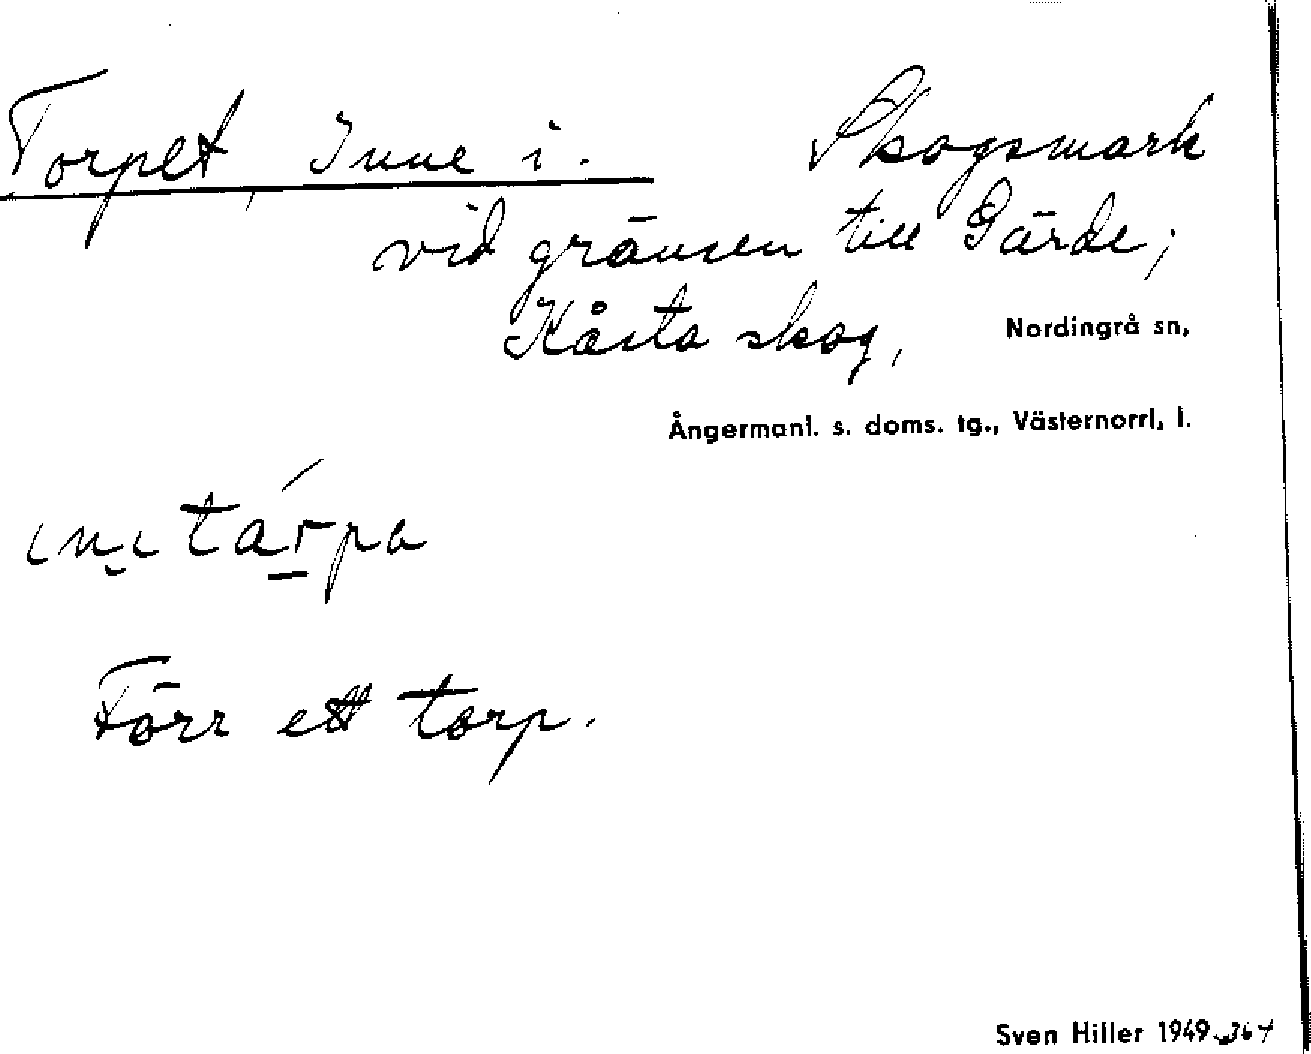 Torpet, Inne i. Skogsmark
vid gränsen till Gärde,
Kåsta skog, Nordingrå sn,
Ångermanl. s. doms. tg., Västernorrl, l.
tárpa
Förr ett torp.
Sven Hiller 1949